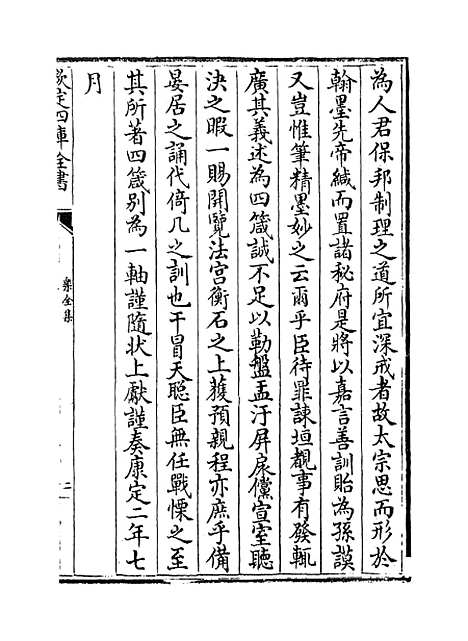 為人君保邦制理之道所宜深戒者故太宗思而形於
翰墨先帝緘而置諸秘府是將以嘉言善訓貽為孫謨
又豈惟筆精墨妙之云爾乎臣待罪諫垣覩事有發輒
廣其義述為四箴誠不足以勒盤盂汙屏扆儻宣室聽
決之暇一賜開覽法宮衡石之上獲預親程亦庶乎備
宴居之誦代倚几之訓也干冒天聪臣無任戰慄之至
其所著四箴别為一軸謹隨状上獻謹奏康定二年七
月
欽定四庫全書
樂全集
二